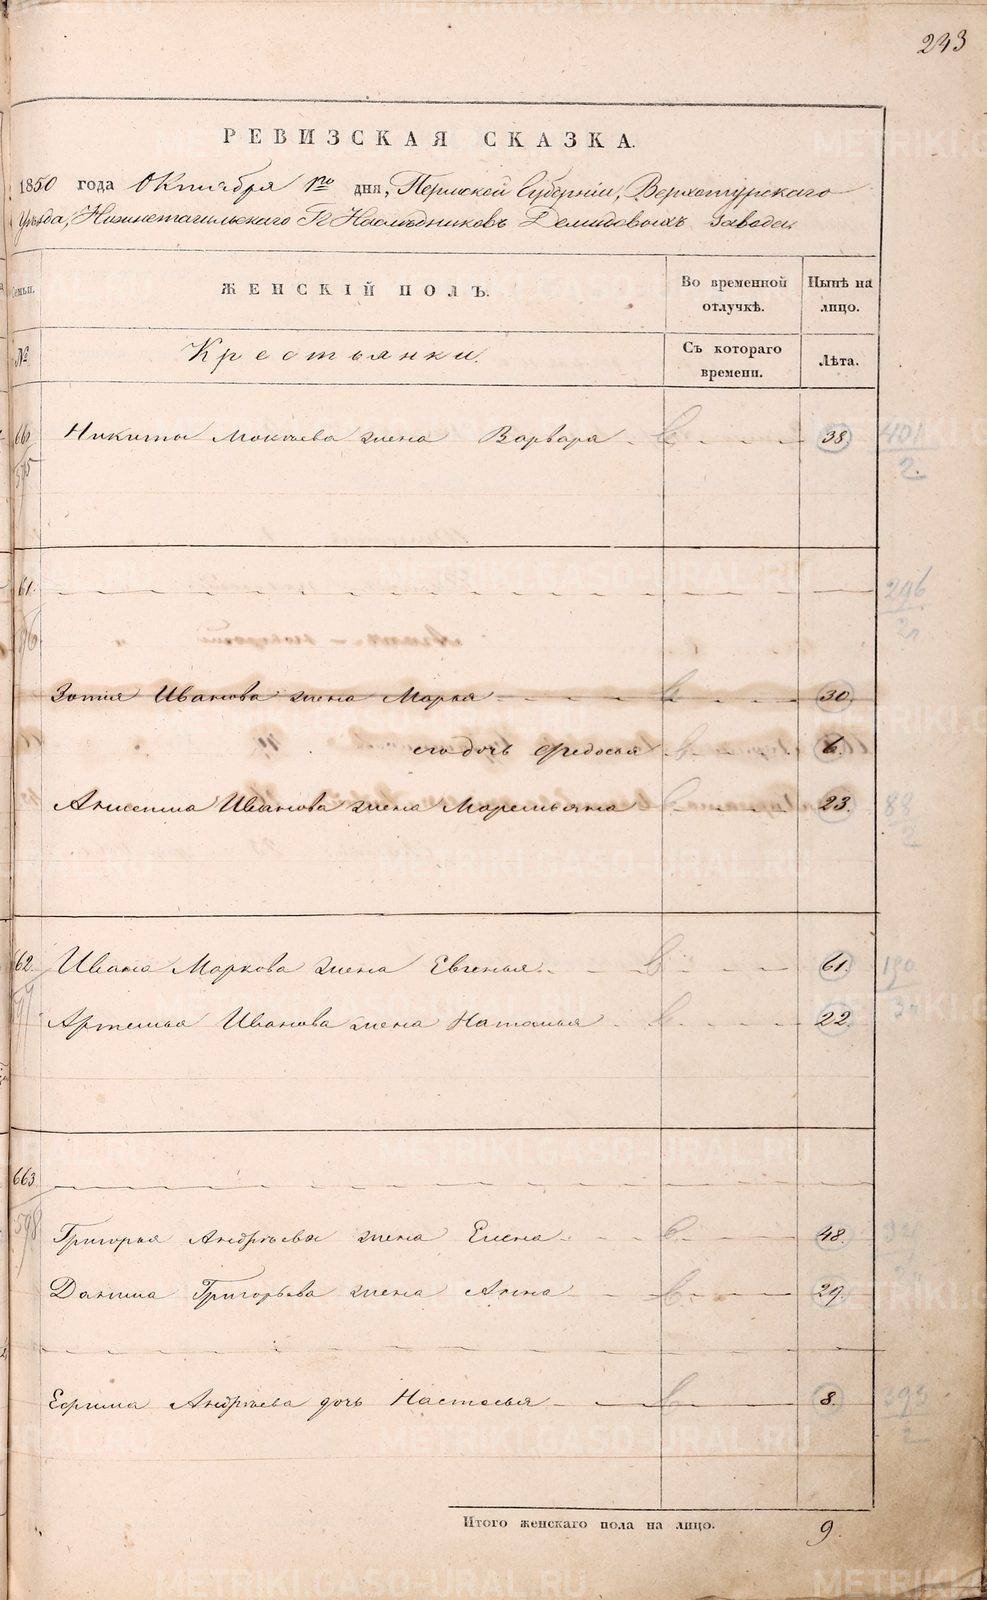 243
РЕВИЗСКАЯ СКАЗКА.
1850 года Октября 1го дня, Пермской Губерніи, Верхотурскаго
Уѣзда, Нижнетагильскаго Гг Наслѣдниковъ Демидовыхъ завода.
Семьи. ЖЕНСКІЙ ПОЛЪ. Во временной отлучкѣ. Нынѣ на лицо.
№ Крестьянки. Съ котораго времени. Лѣта.
660 Никиты Мокѣева жена Варвара 38. 401/2.
595
61. 296/2
596
Зотия Иванова жена Марья 30.
его дочь Федосья 6.
Анисима Иванова жена Маремьяна 23. 88/2
62. Ивана Маркова жена Евгенья 61. 190
Артемья Иванова жена Наталья 22.
663.
598 Григорья Андрѣева жена Елена 48.
Данила Григорьева жена Анна 29.
Ефима Андрѣева дочь Настасья 8. 395/2
Итого женскаго пола на лицо. 9.
METRIKI.GASO-URAL.RU